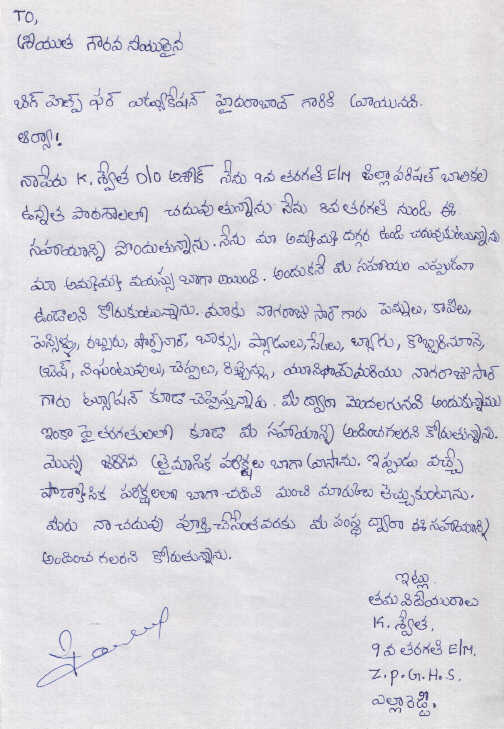 TO,
శ్రీయుత గౌరవ నీయులైన
బిగ్ హెల్ప్ ఫర్ ఎడ్యుకేషన్ హైదరాబాద్ గారికి వ్రాయునది.
ఆర్యా!
నాపేరు K. శ్వేత D/O అశోక్ నేను 9వ తరగతి E/M జిల్లా పరిషత్ బాలికల
ఉన్నత పాఠశాలలో చదువుతున్నాను నేను 8వ తరగతి నుండి ఈ
సహాయాన్ని పొందుతున్నాను. నేను మా అమ్మమ్మ దగ్గర ఉండి చదువుకుంటున్నాను
మా అమ్మమ్మకి వయస్సు బాగా అయింది. అందుకనే మీ సహాయం ఎప్పుడూ
ఉండాలని కోరుకుంటున్నాను. మాకు నాగరాజు సార్ గారు పెన్నులు, కాపీలు,
పెన్సిళ్ళు, రబ్బరు, షార్ప్‌నర్, బాక్సు, ప్యాడులు, స్కేలు, బ్యాగు, కొబ్బరినూనె,
బ్రష్, నిఘంటువులు, చెప్పులు, రిబ్బన్లు, యూనిఫామ్ మరియు నాగరాజు సార్
గారు ట్యూషన్ కూడా చెప్పిస్తున్నారు. మీ ద్వారా మొదలగునవి అందుకున్నాము
ఇంకా పై తరగతులలో కూడా మీ సహాయాన్ని అందించగలరని కోరుతున్నాను.
మొన్న జరిగిన త్రైమాసిక పరీక్షలు బాగా వ్రాసాను. ఇప్పుడు వచ్చే
షాణ్మాసిక పరీక్షలలో బాగా చదివి మంచి మార్కులు తెచ్చుకుంటాను.
మీరు నా చదువు పూర్తి చేసేంతవరకు మీ సంస్థ ద్వారా ఈ సహాయాన్ని
అందించ గలరని కోరుతున్నాను.
ఇట్లు
తమ విధేయురాలు
K. శ్వేత.
9 వ తరగతి E/M.
Z.P.G.H.S.
ఎల్లారెడ్డి.